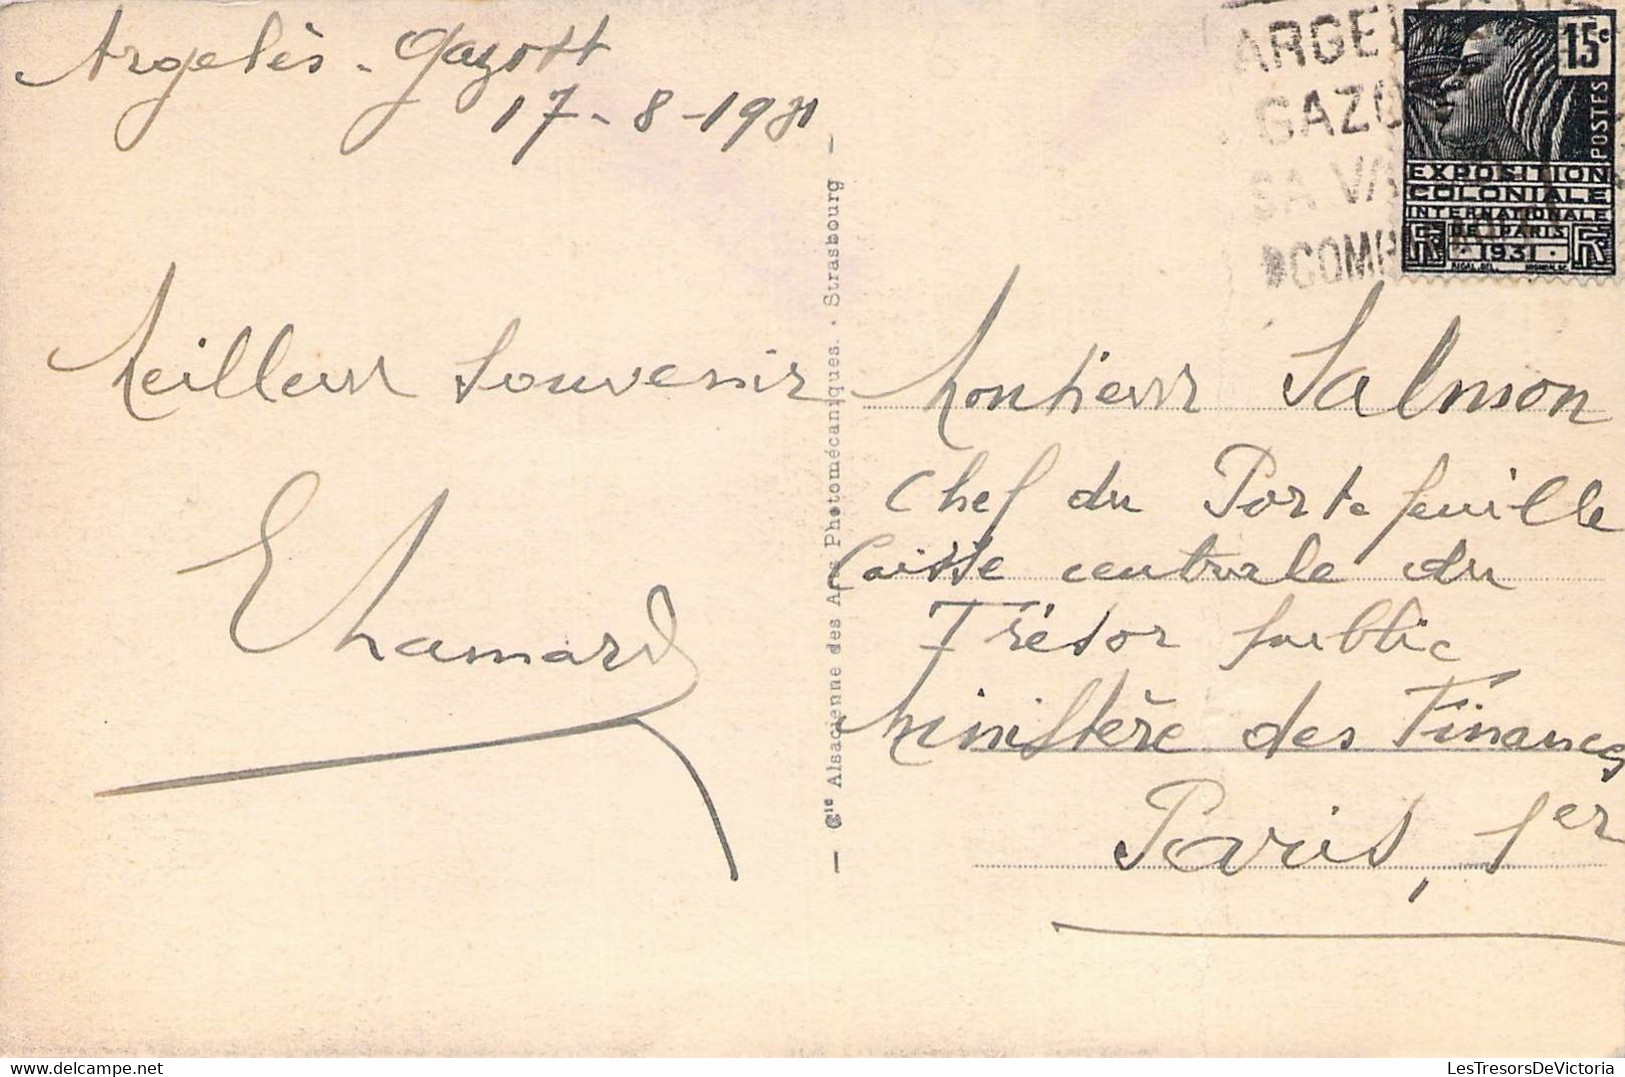 Argelès-Gazost
17-8-1931
Meilleur souvenir
Chamard
Cie Alsacienne des Arts Photomécaniques. - Strasbourg
ARGELES
GAZO
SA VA
COM
15c
POSTES
EXPOSITION
COLONIALE
INTERNATIONALE
DE PARIS
1931
Monsieur Salmon
Chef du Portefeuille
Caisse centrale du
Trésor public
Ministère des Finances
Paris, 1er
LesTresorsDeVictoria